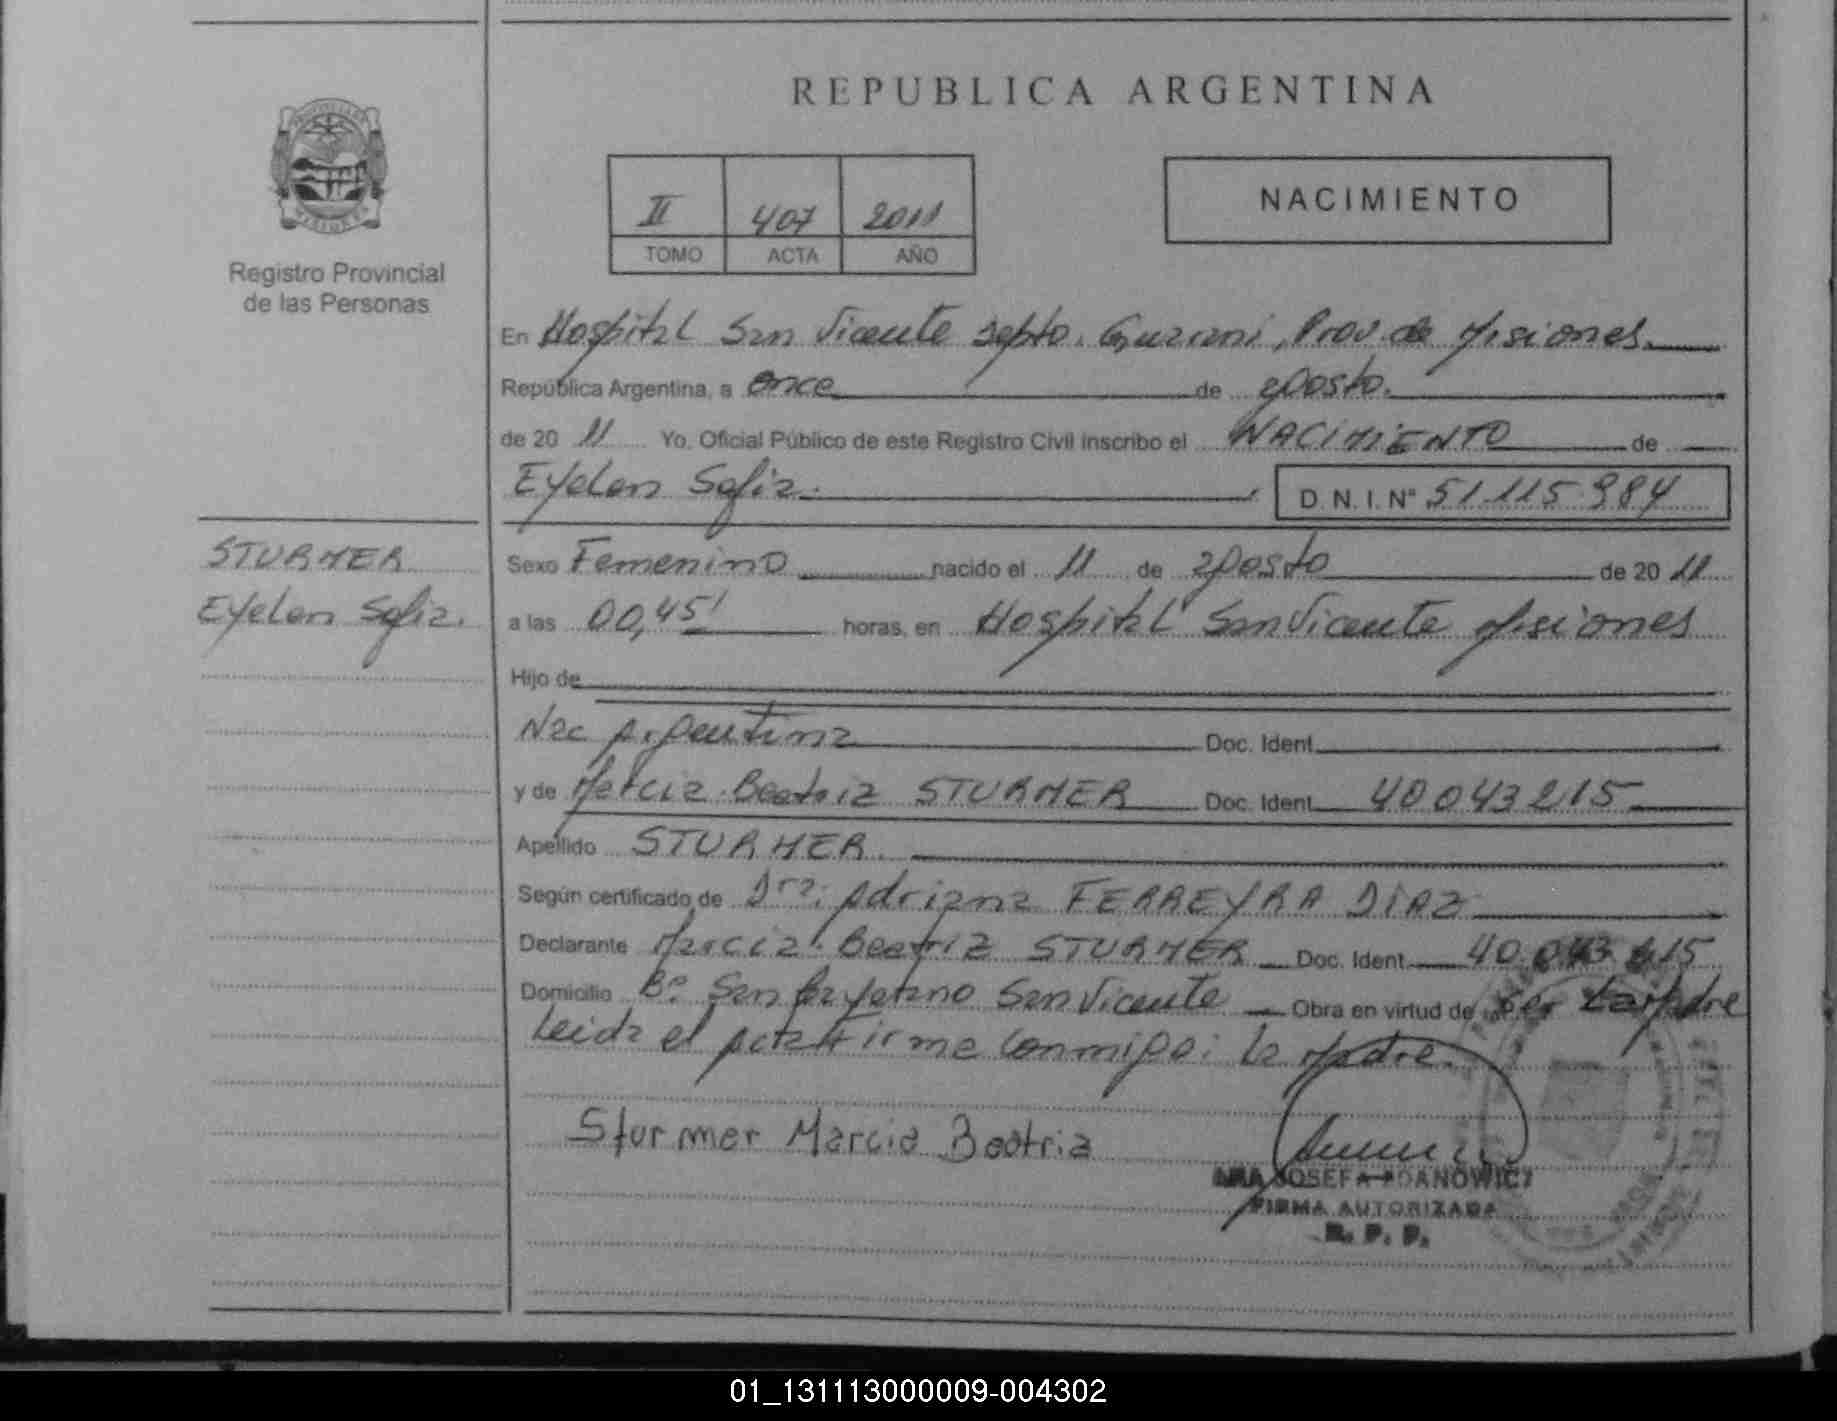 REPUBLICA ARGENTINA
Registro Provincial
de las Personas
II 407 2011
TOMO ACTA AÑO
NACIMIENTO
En Hospital San Vicente Depto. Guarani, Prov. de Misiones.
República Argentina, a once de agosto.
de 20 11 Yo. Oficial Público de este Registro Civil inscribo el NACIMIENTO de
Eyelen Sofia. D. N. I. Nº 51.115.984
STURMER
Eyelen Sofia.
Sexo Femenino nacido el 11 de agosto de 20 11
a las 00,45' horas, en Hospital San Vicente Misiones
Hijo de
Nac Argentina Doc. Ident.
y de Marcia Beatriz STURMER Doc. Ident. 40043215
Apellido STURMER.
Según certificado de Dra: Adriana FERREYRA DIAZ
Declarante Marcia Beatriz STURMER Doc. Ident. 40.043.215
Domicilio Bº San Cayetano San Vicente Obra en virtud de Ser La Madre
Leida el Acta Firme Conmigo: La Madre.
Sturmer Marcia Beatriz
JOSEFA ADANOWICZ
FIRMA AUTORIZADA
R. P. P.
01_131113000009-004302